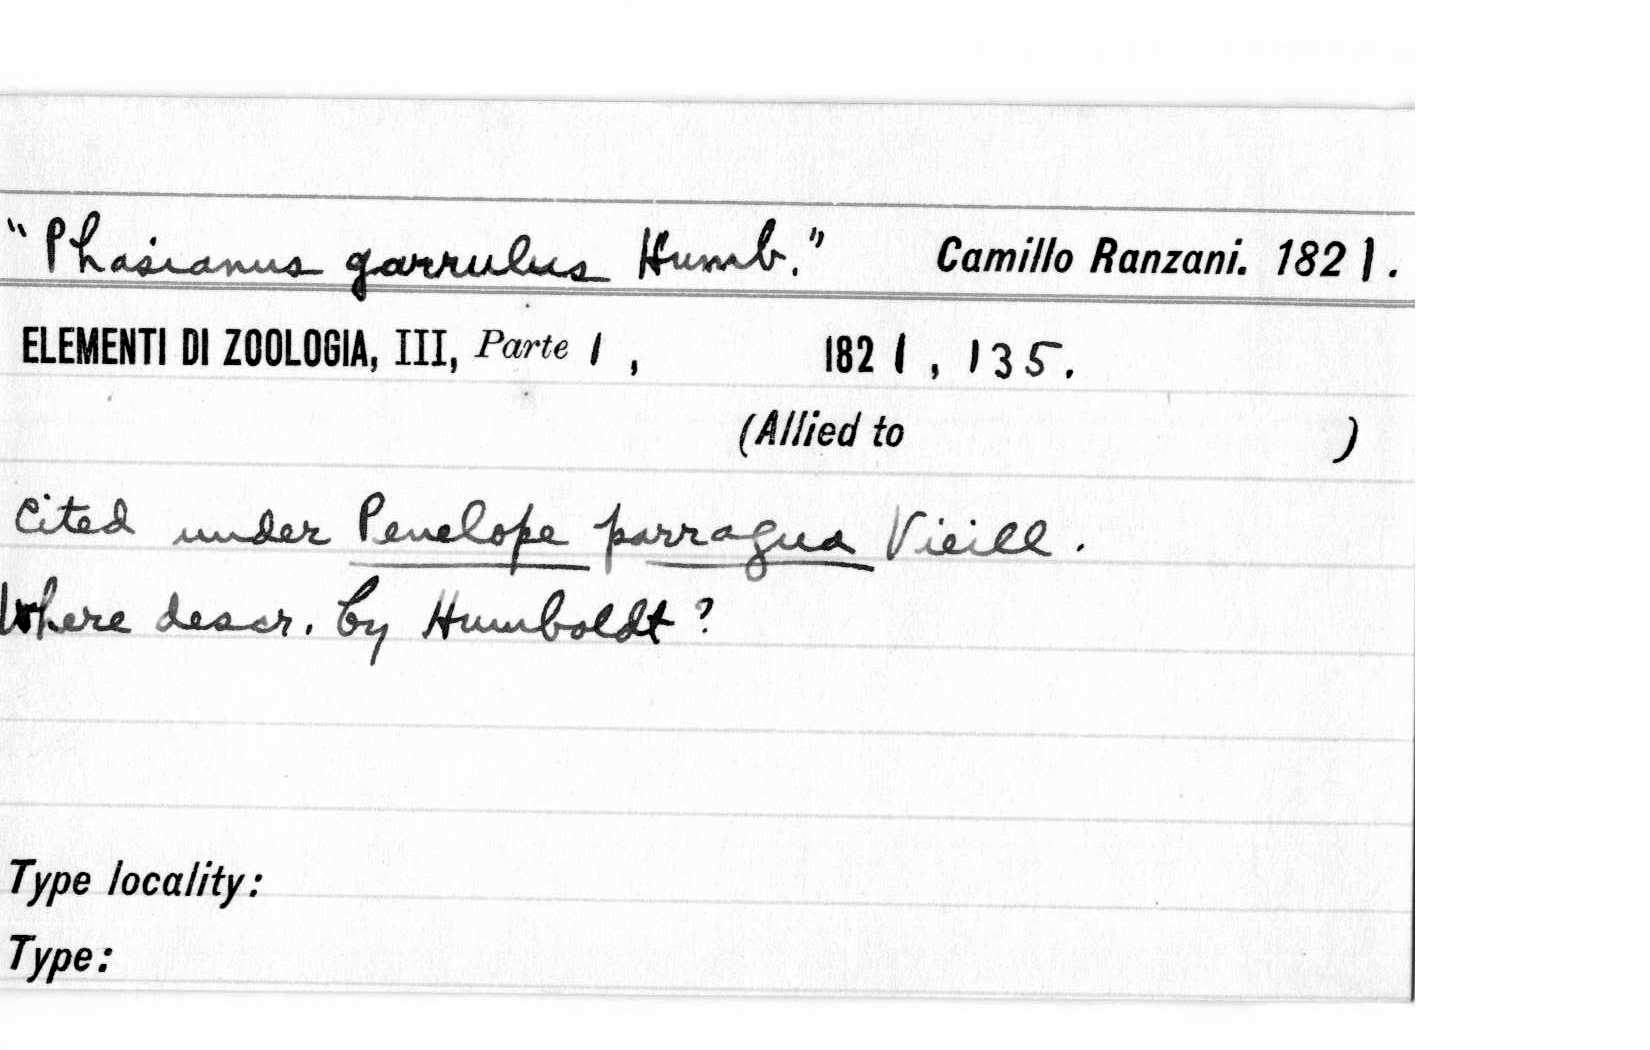 "Phasianus garrulus Humb." Camillo Ranzani. 1821.
ELEMENTI DI ZOOLOGIA, III, Parte 1, 1821, 135.
(Allied to )
Cited under Penelope parragua Vieill.
Where descr. by Humboldt?
Type locality:
Type: